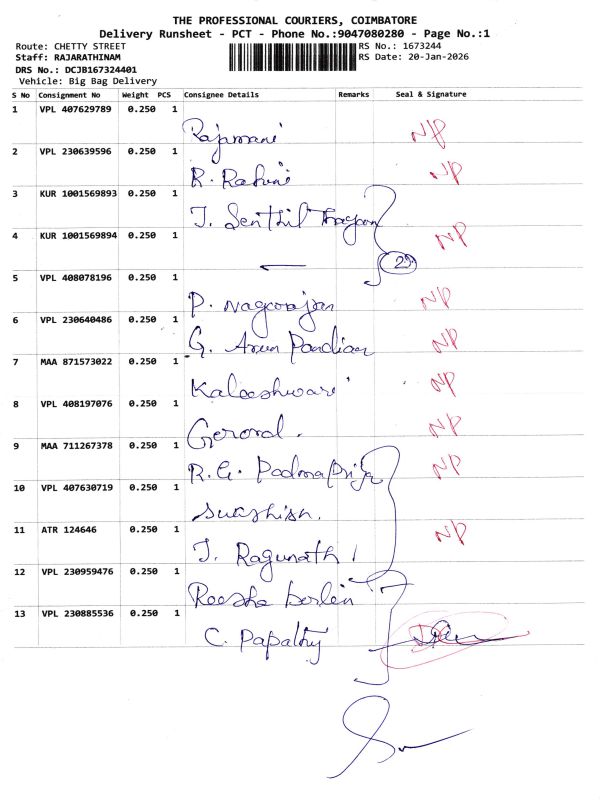 THE PROFESSIONAL COURIERS, COIMBATORE
Delivery Runsheet - PCT - Phone No.:9047080280 - Page No.:1
Route: CHETTY STREET
Staff: RAJARATHINAM
DRS No.: DCJB167324401
Vehicle: Big Bag Delivery
RS No.: 1673244
RS Date: 20-Jan-2026
S No Consignment No Weight PCS Consignee Details Remarks Seal & Signature
1 VPL 407629789 0.250 1
Rajamani NP
2 VPL 230639596 0.250 1
R. Rohini NP
3 KUR 1001569893 0.250 1
T. Senthil Thayan
4 KUR 1001569894 0.250 1 NP
2
5 VPL 408078196 0.250 1
P. Nagoorajan NP
6 VPL 230640486 0.250 1
G. Arun Pandian NP
7 MAA 871573022 0.250 1
Kaleeshwari NP
8 VPL 408197076 0.250 1
Gerorad. NP
9 MAA 711267378 0.250 1
R.G. Padmapriya NP
10 VPL 407630719 0.250 1
11 ATR 124646 0.250 1
T. Ragunath NP
12 VPL 230959476 0.250 1
13 VPL 230885536 0.250 1
C. Papathy